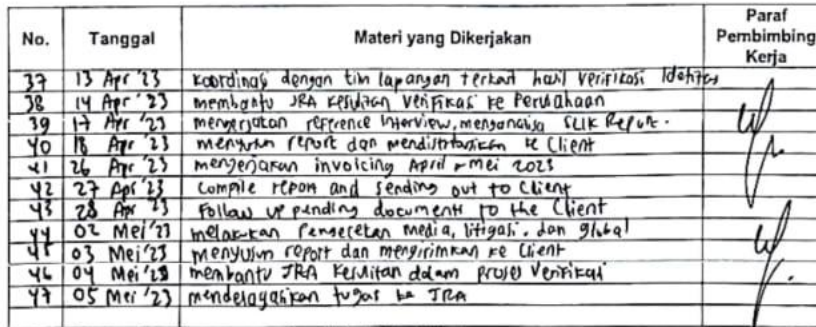 No. Tanggal Materi yang Dikerjakan Paraf Pembimbing Kerja
37 13 Apr '23 koordinasi dengan tim lapangan terkait hasil verifikasi Identitas
38 14 Apr '23 membantu JRA kesulitan verifikasi ke Perusahaan
39 17 Apr '23 mengerjakan reference interview, menganalisa SLIK Report.
40 18 Apr '23 menyusun report dan mendistribusikan ke Client
41 26 Apr '23 mengerjakan invoicing April - Mei 2023
42 27 Apr '23 Compile report and sending out to Client
43 28 Apr '23 Follow up pending documents to the Client
44 02 Mei '23 melakukan Pengecekan media, litigasi, dan global
45 03 Mei '23 menyusun report dan mengirimkan ke Client
46 04 Mei '23 membantu JRA kesulitan dalam proses verifikasi
47 05 Mei '23 mendelagasikan tugas ke JRA